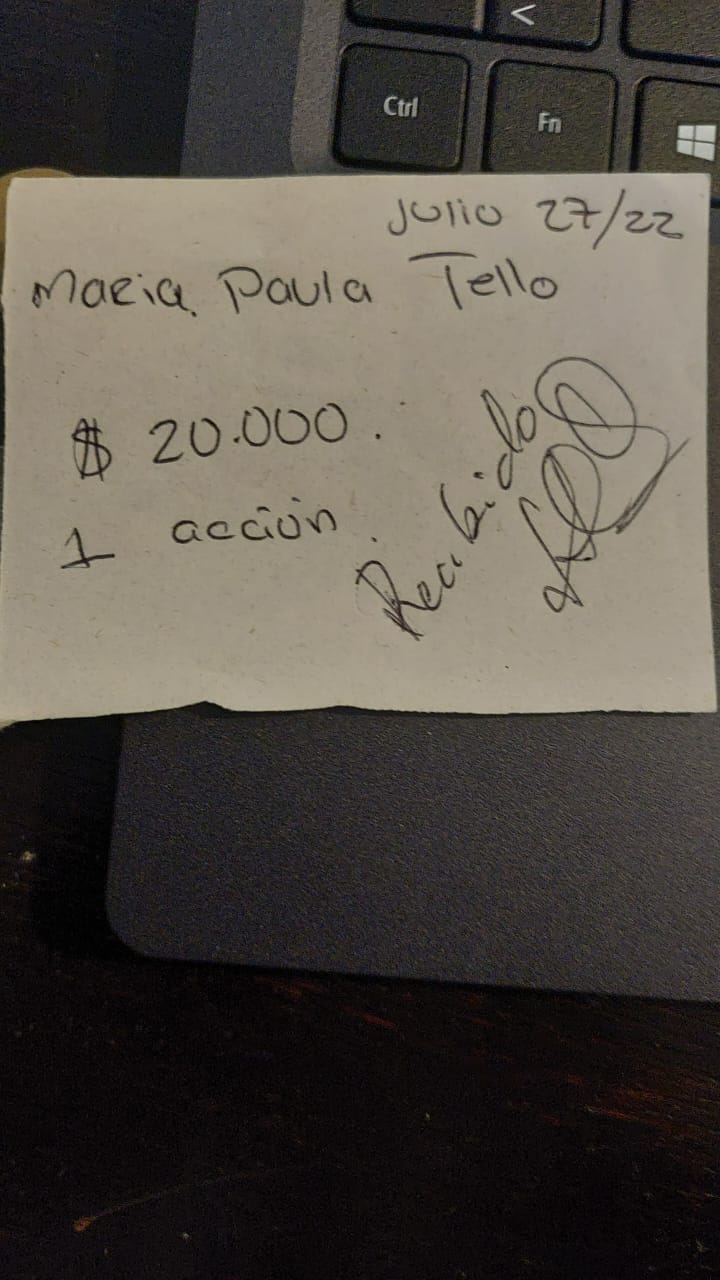 <
Ctrl
Fn
Julio 27/22
Maria Paula Tello
$ 20.000.
1 acción.
Recibido